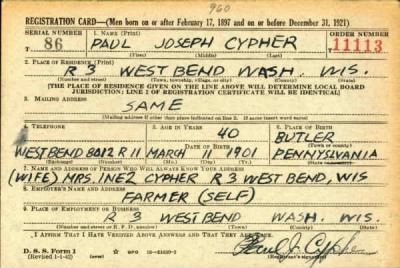 960
REGISTRATION CARD—(Men born on or after February 17, 1897 and on or before December 31, 1921)
SERIAL NUMBER 1. NAME (Print) ORDER NUMBER
86 PAUL JOSEPH CYPHER 11113
(First) (Middle) (Last)
2. PLACE OF RESIDENCE (Print)
R 3 WEST BEND WASH. WIS.
(Number and street) (Town, township, village, or city) (County) (State)
[THE PLACE OF RESIDENCE GIVEN ON THE LINE ABOVE WILL DETERMINE LOCAL BOARD
JURISDICTION; LINE 2 OF REGISTRATION CERTIFICATE WILL BE IDENTICAL]
3. MAILING ADDRESS
SAME
[Mailing address if other than place indicated on line 2. If same insert word same]
4. TELEPHONE 5. AGE IN YEARS 6. PLACE OF BIRTH
40 BUTLER
DATE OF BIRTH (Town or county)
WEST BEND 8012 R 11 MARCH 11 1901 PENNSYLVANIA
(Exchange) (Number) (Mo.) (Day) (Yr.) (State or country)
7. NAME AND ADDRESS OF PERSON WHO WILL ALWAYS KNOW YOUR ADDRESS
(WIFE) MRS. INEZ CYPHER R 3 WEST BEND, WIS
8. EMPLOYER'S NAME AND ADDRESS
FARMER (SELF)
9. PLACE OF EMPLOYMENT OR BUSINESS
R 3 WEST BEND WASH. WIS.
(Number and street or R. F. D. number) (Town) (County) (State)
I AFFIRM THAT I HAVE VERIFIED ABOVE ANSWERS AND THAT THEY ARE TRUE.
D. S. S. Form 1
(Revised 1-1-42) GPO Paul J. Cypher
(Registrant's signature)